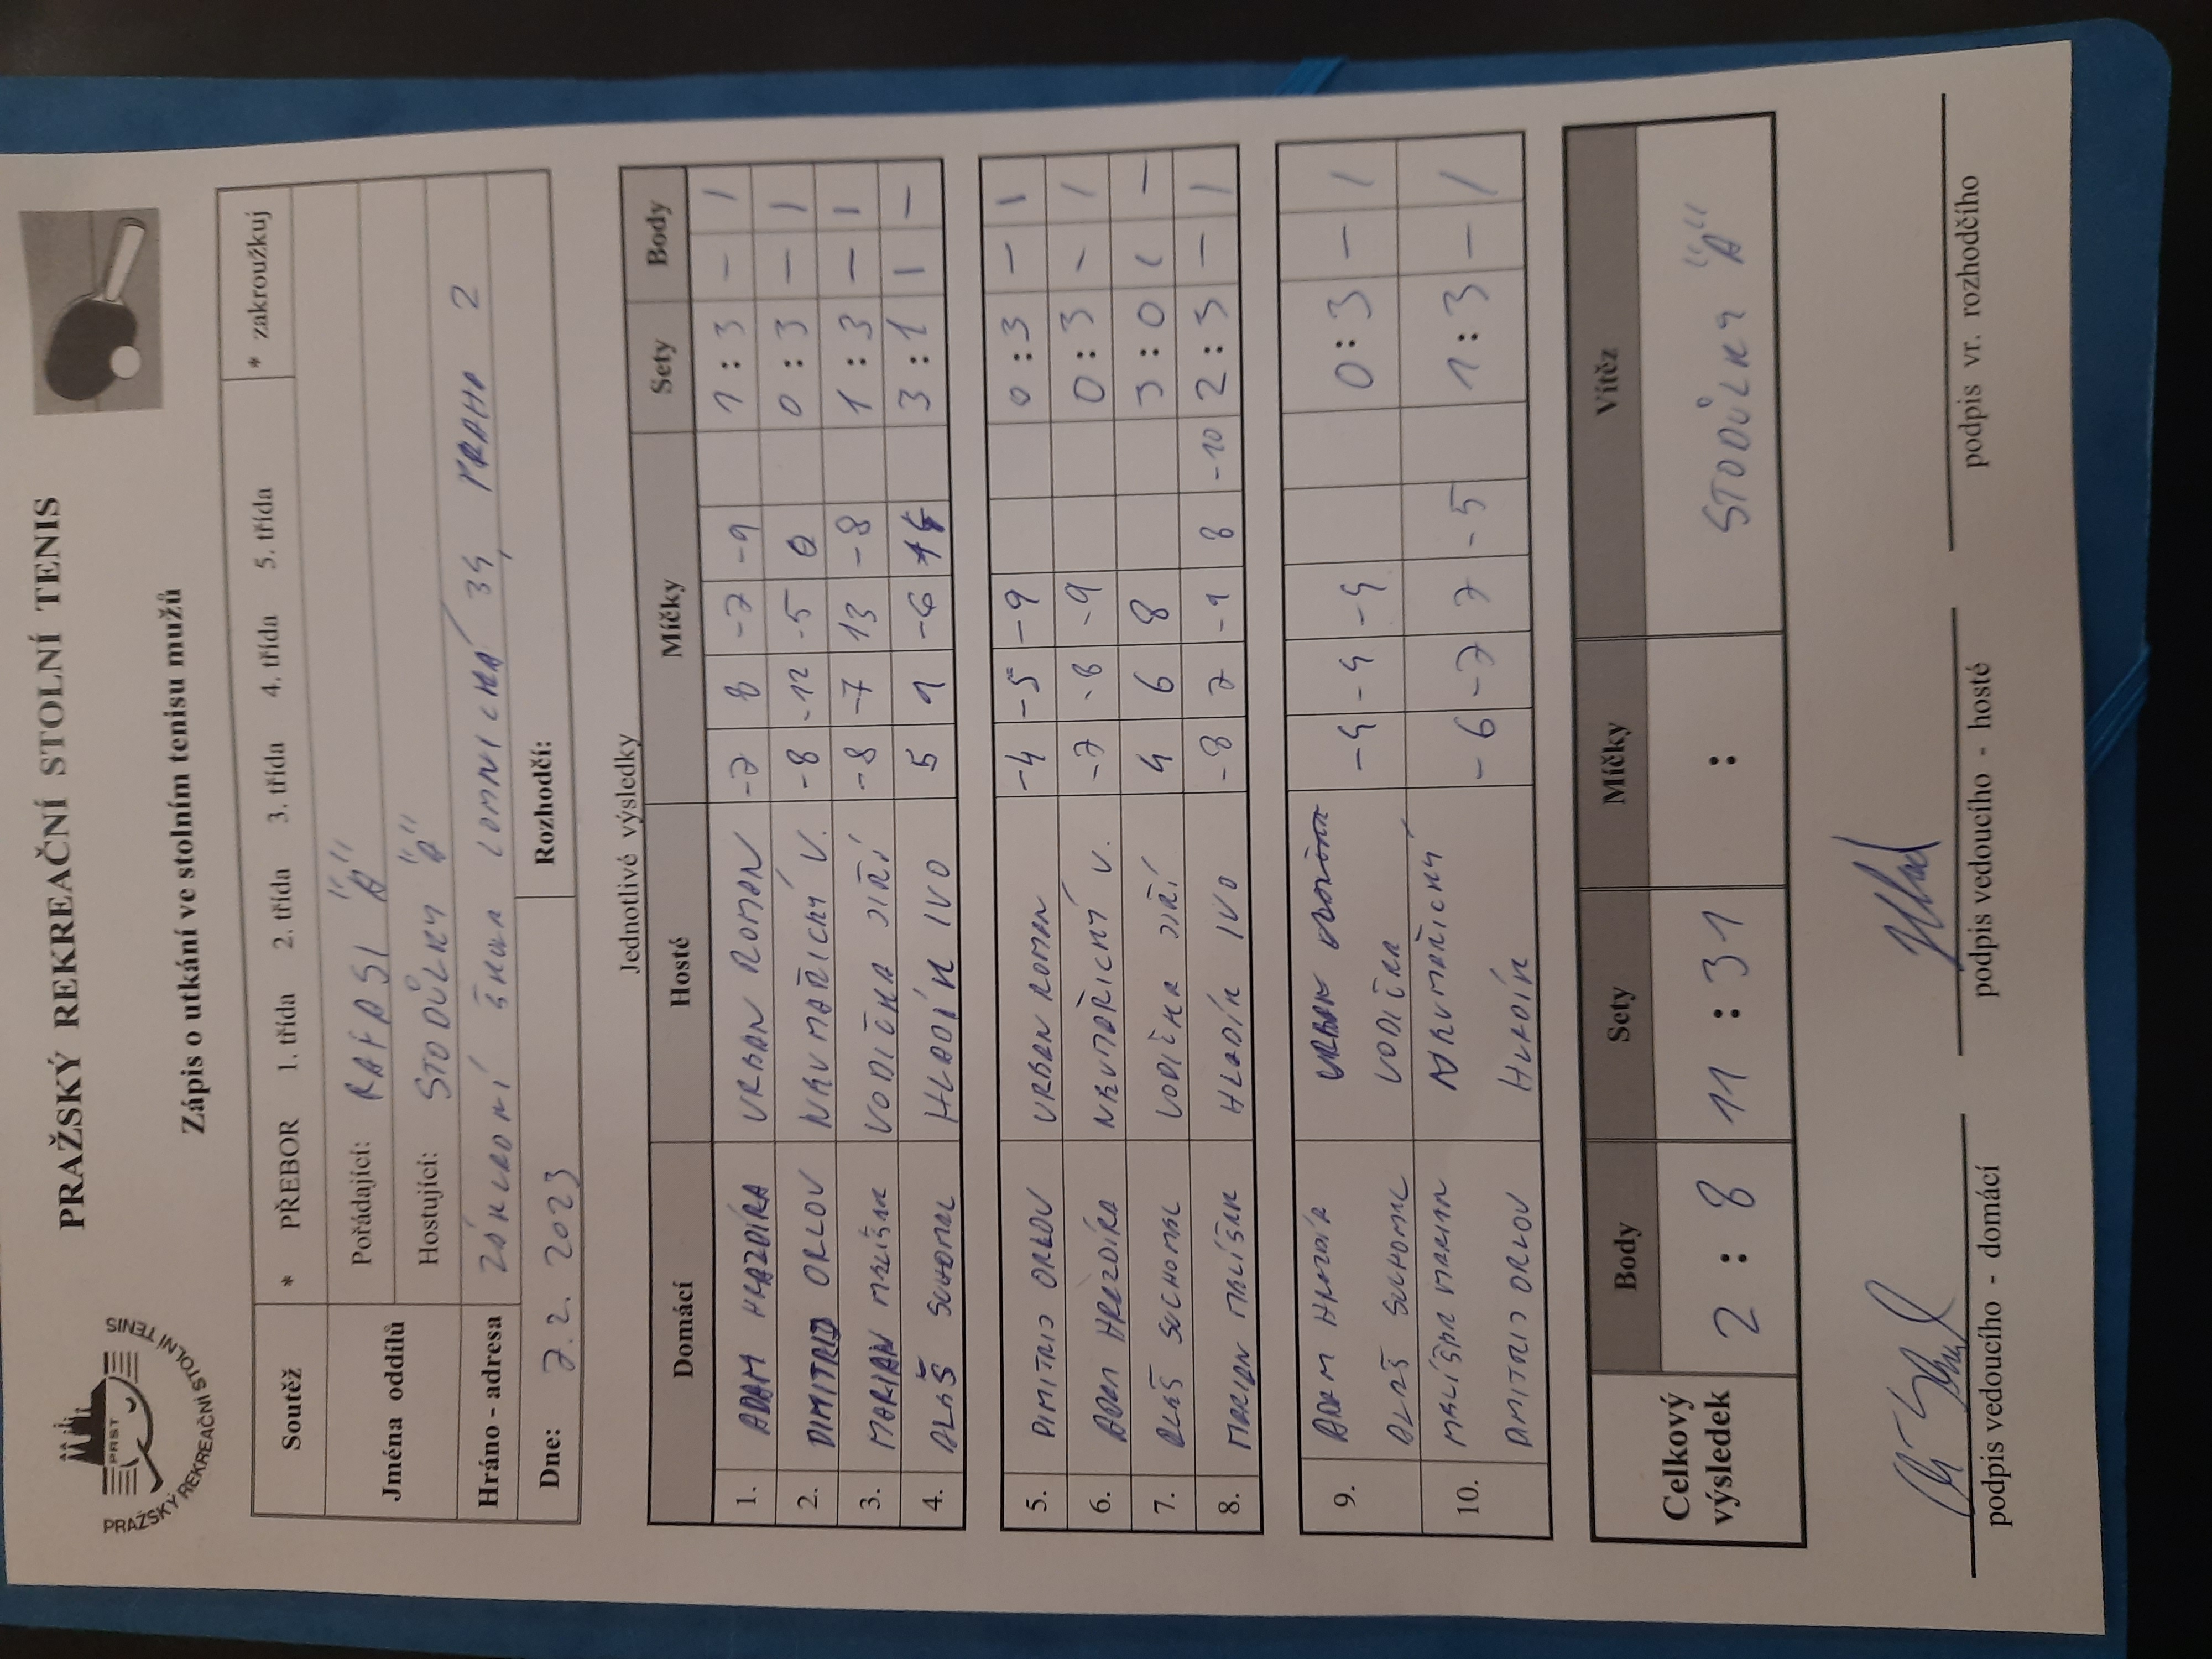 PRAŽSKÝ REKREAČNÍ STOLNÍ TENIS
PRST
PRAŽSKÝ REKREAČNÍ STOLNÍ TENIS
Zápis o utkání ve stolním tenisu mužů
Soutěž * PŘEBOR 1. třída 2. třída 3. třída 4. třída 5. třída * zakroužkuj
Jména oddílů Pořádající: "A"
Hostující: STODŮLKY "A"
Hráno - adresa ZÁKLADNÍ ŠKOLA LOMNICKÁ PRAHA 2
Dne: 7.2. 2023 Rozhodčí:
Jednotlivé výsledky
Domácí Hosté Míčky Sety Body
1. ADAM HRAZDÍRA URBAN ROMAN -7 8 -7 -9 1 : 3 – 1
2. DIMITRIJ ORLOV V. -8 -12 -5 0 : 3 – 1
3. MARIAN VODIČKA JIŘÍ -8 -7 13 -8 1 : 3 – 1
4. ALEŠ SUCHOMEL HLADÍK IVO 5 9 -6 3 : 1 1 –
5. DIMITRIJ ORLOV URBAN ROMAN -4 -5 -9 0 : 3 – 1
6. ADAM HRAZDÍRA V. -7 -8 -9 0 : 3 – 1
7. ALEŠ SUCHOMEL VODIČKA JIŘÍ 4 6 8 3 : 0 1 –
8. MARIAN HLADÍK IVO -8 7 -9 8 -10 2 : 3 – 1
9. ADAM URBAN 0 : 3 – 1
ALEŠ SUCHOMEL VODIČKA
10. MARIAN -6 -7 7 -5 1 : 3 – 1
DMITRIJ ORLOV HLADÍK
Celkový výsledek Body Sety Míčky Vítěz
2 : 8 11 : 31 : STODŮLKY "A"
podpis vedoucího - domácí podpis vedoucího - hosté podpis vr. rozhodčího